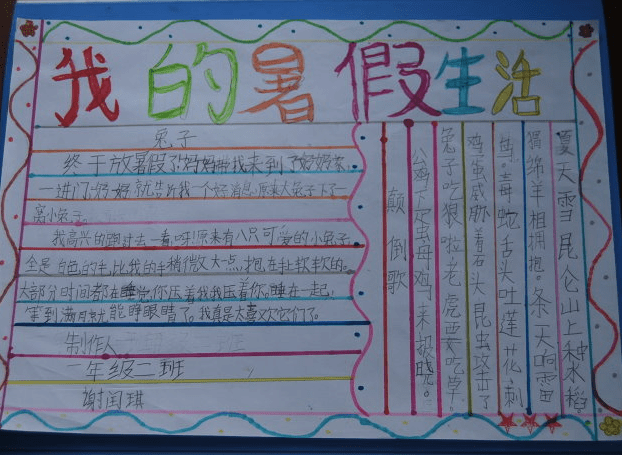 我的暑假生活
兔子
终于放暑假了妈妈带我来到了奶奶家,
一进门奶奶就告诉我一个好消息,原来大兔子下了一
窝小兔子。
我高兴的跑过去一看,呀!原来有八只可爱的小兔子
全是白色的毛,比我的手稍微大一点,抱在手上软软的。
大部分时间都在睡觉,你压着我我压着你,睡在一起,
等到满月就能睁眼睛了。我真是太喜欢它们了。
制作人
一年级二班
谢闰琪
夏天雪昆仑山上种水稻
猬绵羊相拥抱。冬天响雷
毒蛇舌头吐莲花刺
鸡蛋威胁着石头昆虫攻击了
兔子吃狼啦老虎要吃草。
公鸡下足蛋母鸡来报晓。
颠倒歌